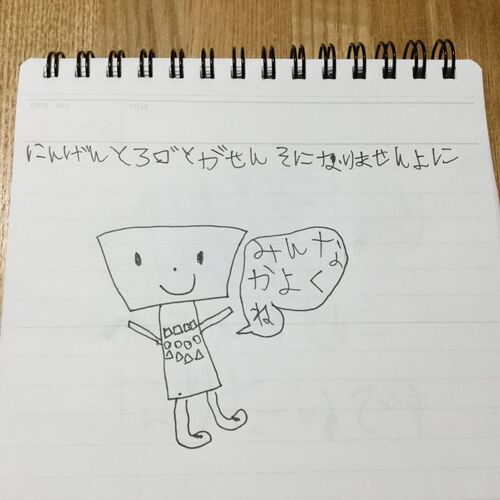 DATE・NO.
TITLE
にんげんとろぼとがせんそになりませんよに
みんな
かよく
ね